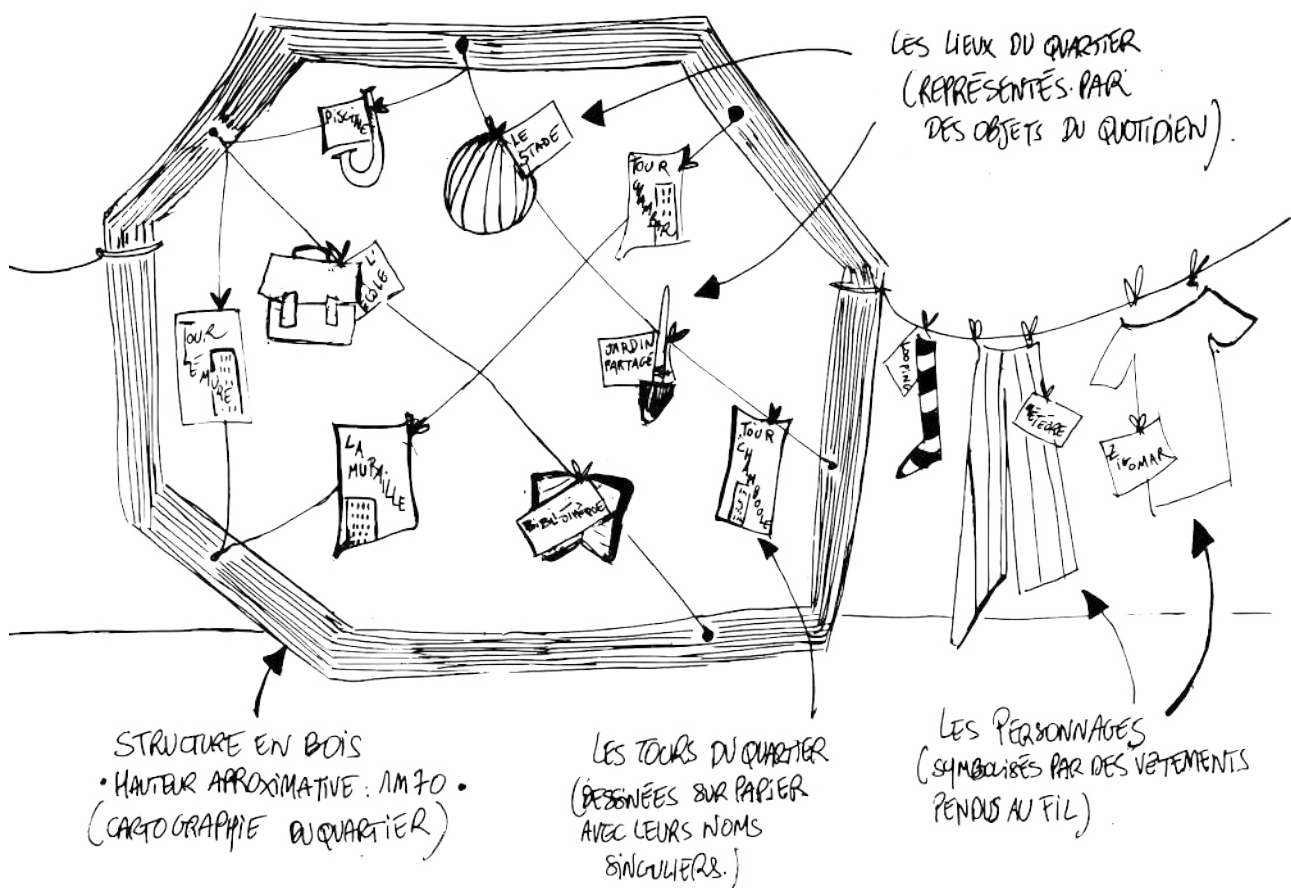 LES LIEUX DU QUARTIER
(REPRÉSENTÉS PAR
DES OBJETS DU QUOTIDIEN).
PISCINE
LE
STADE
TOUR
L'
ÉCOLE
TOUR
LÉMURE
JARDIN
PARTAGÉ
LA
MURAILLE
BIBLIOTHÈQUE
TOUR
CHAMBOULE
LOOPING
ZIGOMAR
STRUCTURE EN BOIS
• HAUTEUR APPROXIMATIVE : 1M70 •
(CARTOGRAPHIE DU QUARTIER)
LES TOURS DU QUARTIER
(DESSINÉES SUR PAPIER
AVEC LEURS NOMS
SINGULIERS.)
LES PERSONNAGES
(SYMBOLISÉS PAR DES VÊTEMENTS
PENDUS AU FIL)